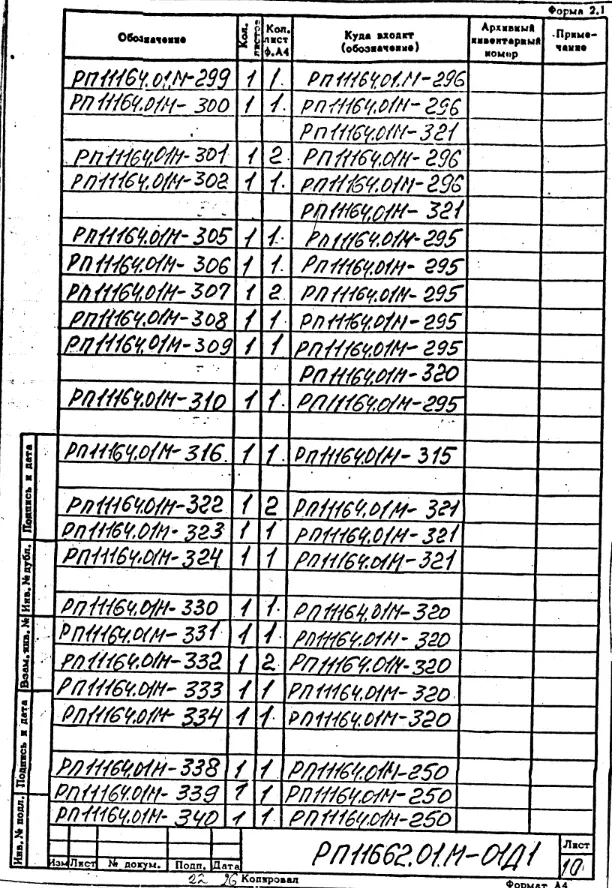 Форма 2.1
Обозначение | Кол. листов | Кол. лист ф.А4 | Куда входит (обозначение) | Архивный инвентарный номер | Приме-чание
РП11164.01М-299 1 1. РП11164.01.М-296
РП11164.01М-300 1 1. РП11164.01М-296
РП11164.01М-321
РП11164.01М-301 1 2 РП11164.01М-296
РП11164.01М-302 1 1. РП11164.01М-296
РП11164.01М-321
РП11164.01М-305 1 1. РП11164.01М-295
РП11164.01М-306 1 1. РП11164.01М-295
РП11164.01М-307 1 2 РП11164.01М-295
РП11164.01М-308 1 1 РП11164.01М-295
РП11164.01М-309 1 1 РП11164.01М-295
РП11164.01М-320
РП11164.01М-310 1 1. РП11164.01М-295
РП11164.01М-316. 1 1. РП11164.01М-315
РП11164.01М-322 1 2 РП11164.01М-321
РП11164.01М-323 1 1 РП11164.01М-321
РП11164.01М-324 1 1 РП11164.01М-321
РП11164.01М-330 1 1. РП11164.01М-320
РП11164.01М-331 1 1. РП11164.01М-320
РП11164.01М-332 1 2 РП11164.01М-320
РП11164.01М-333 1 1 РП11164.01М-320
РП11164.01М-334 1 1. РП11164.01М-320
РП11164.01М-338 1 1 РП11164.01М-250
РП11164.01М-339 1 1. РП11164.01М-250
РП11164.01М-340 1 1. РП11164.01М-250
Подпись и дата
Инв. № дубл.
Взам. инв. №
Подпись и дата
Инв. № подл.
Изм Лист № докум. Подп. Дата
РП11662.01.М-01Д1
Лист
10
22 96 Копировал
Формат А4